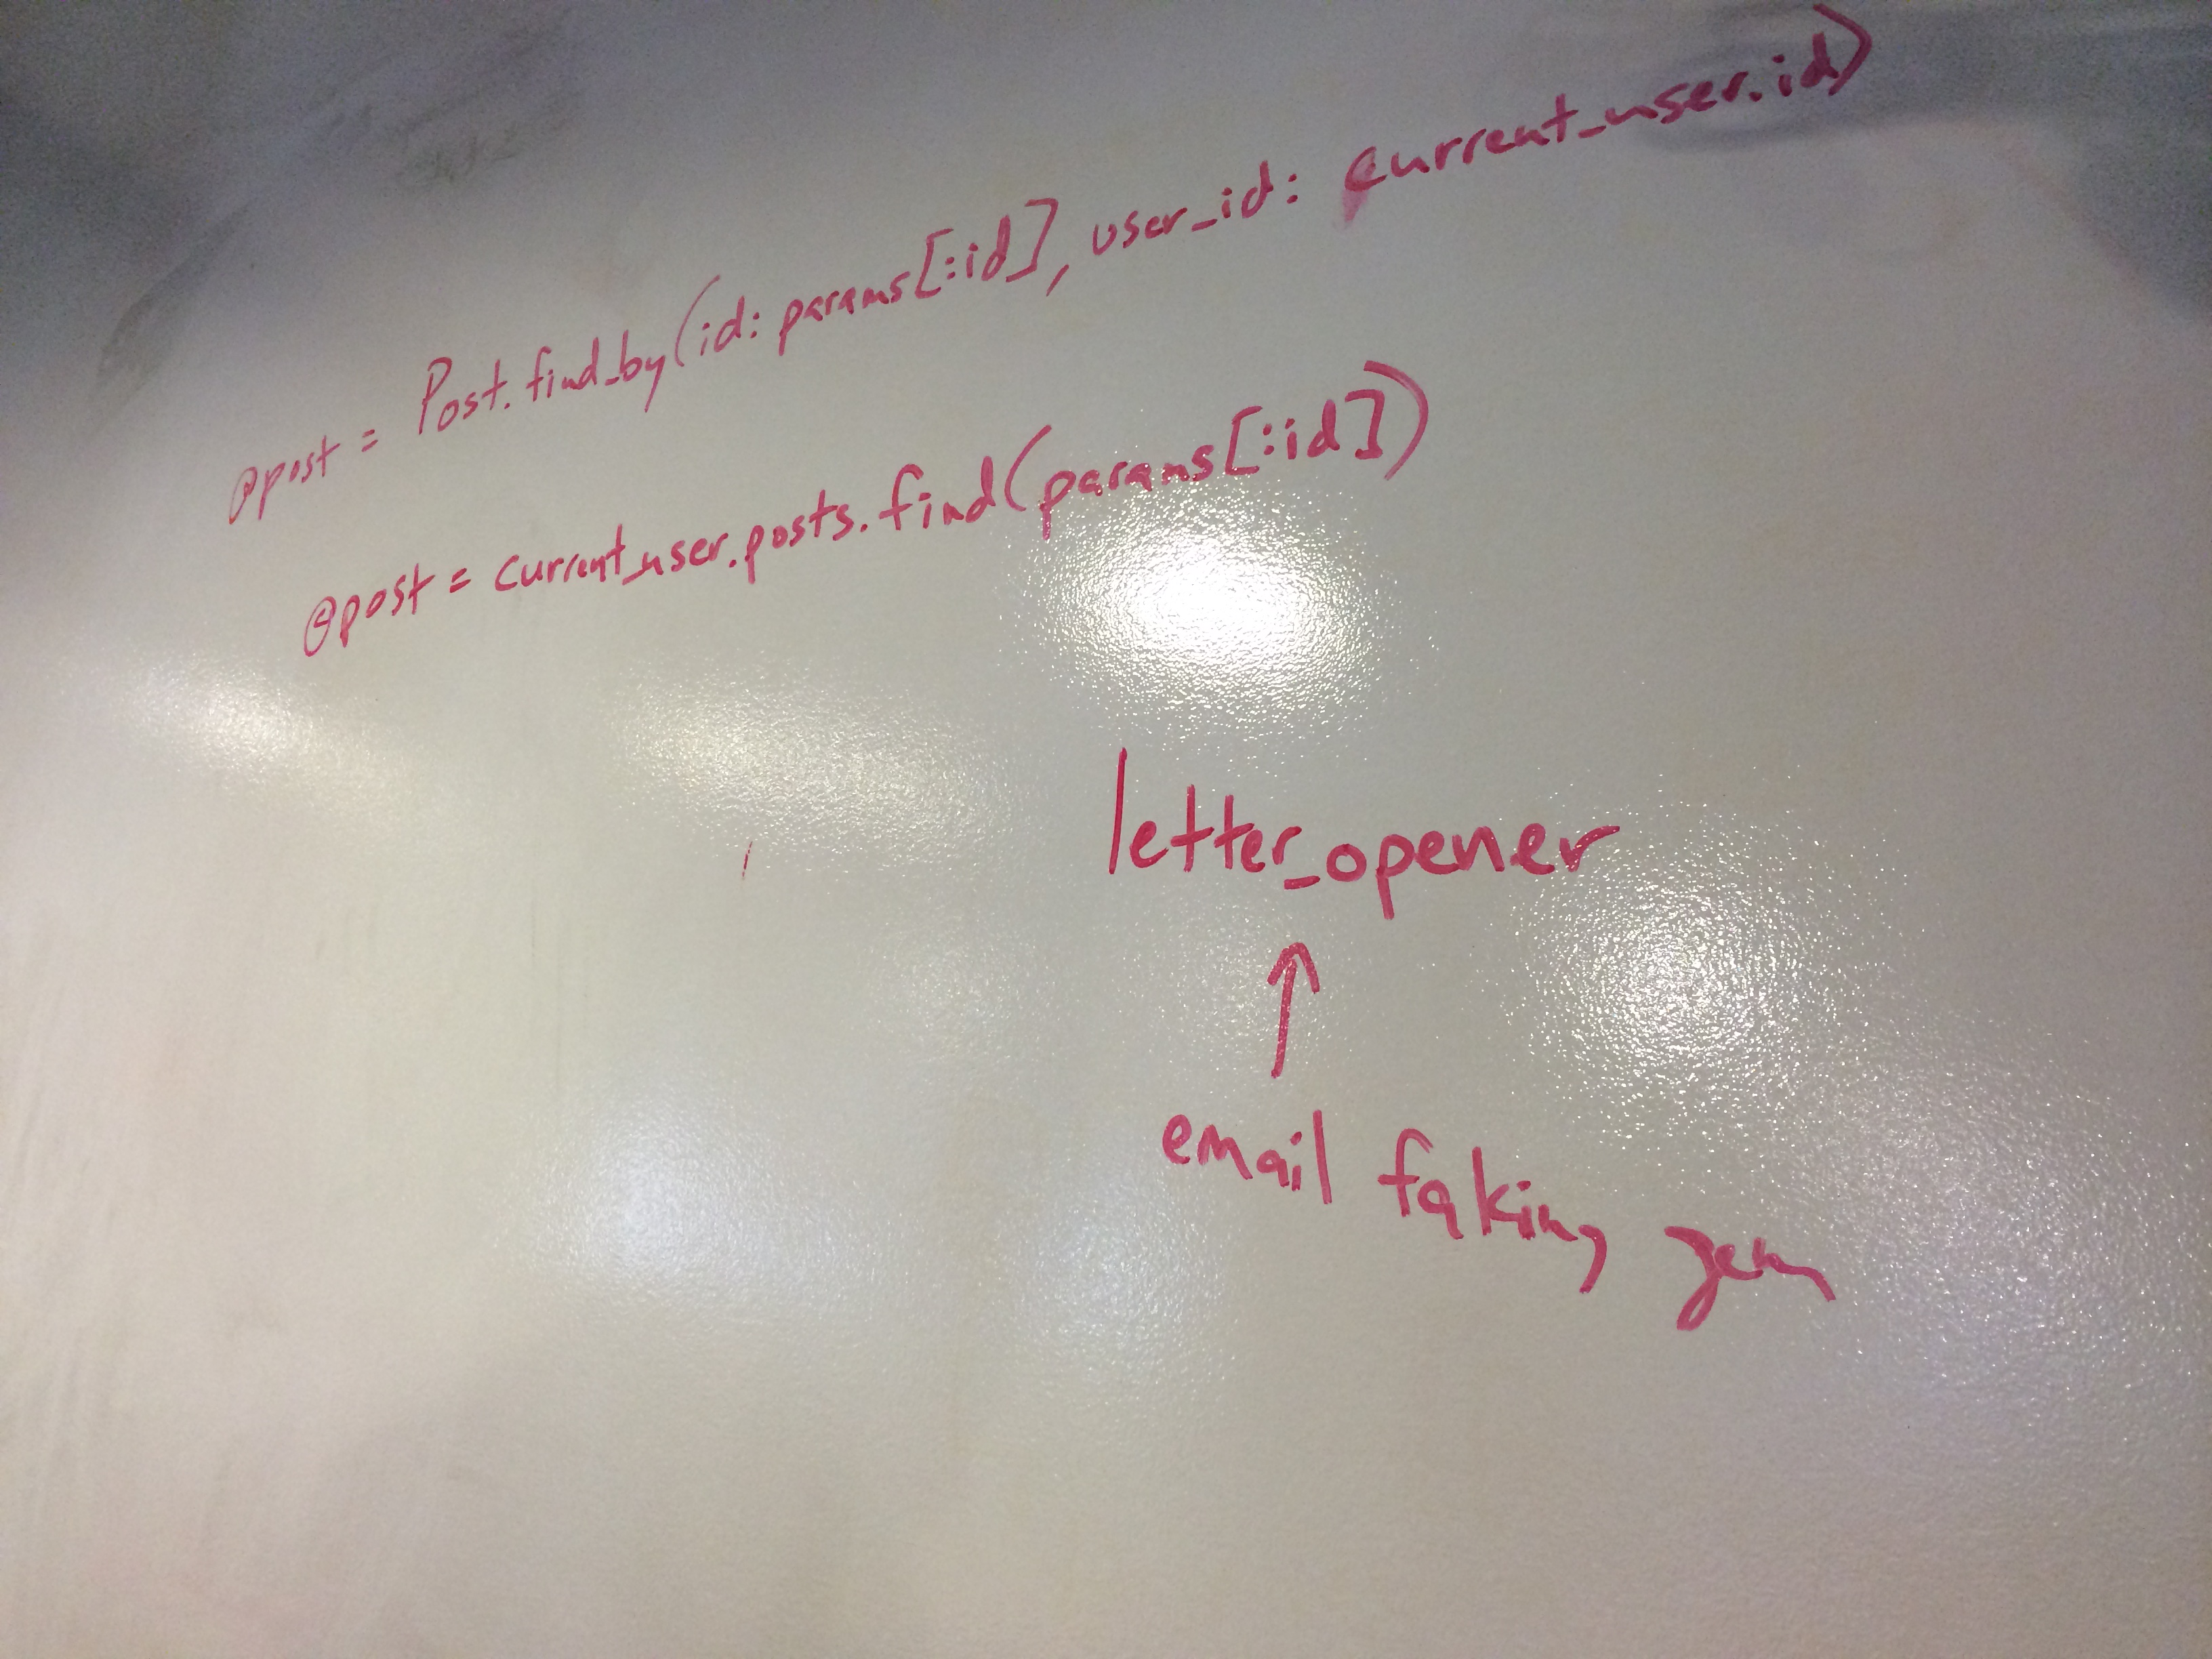 @post = Post.find_by(id: params[:id], user_id: current_user.id)
@post = current_user.posts.find(params[:id])
letter_opener
email faking gem